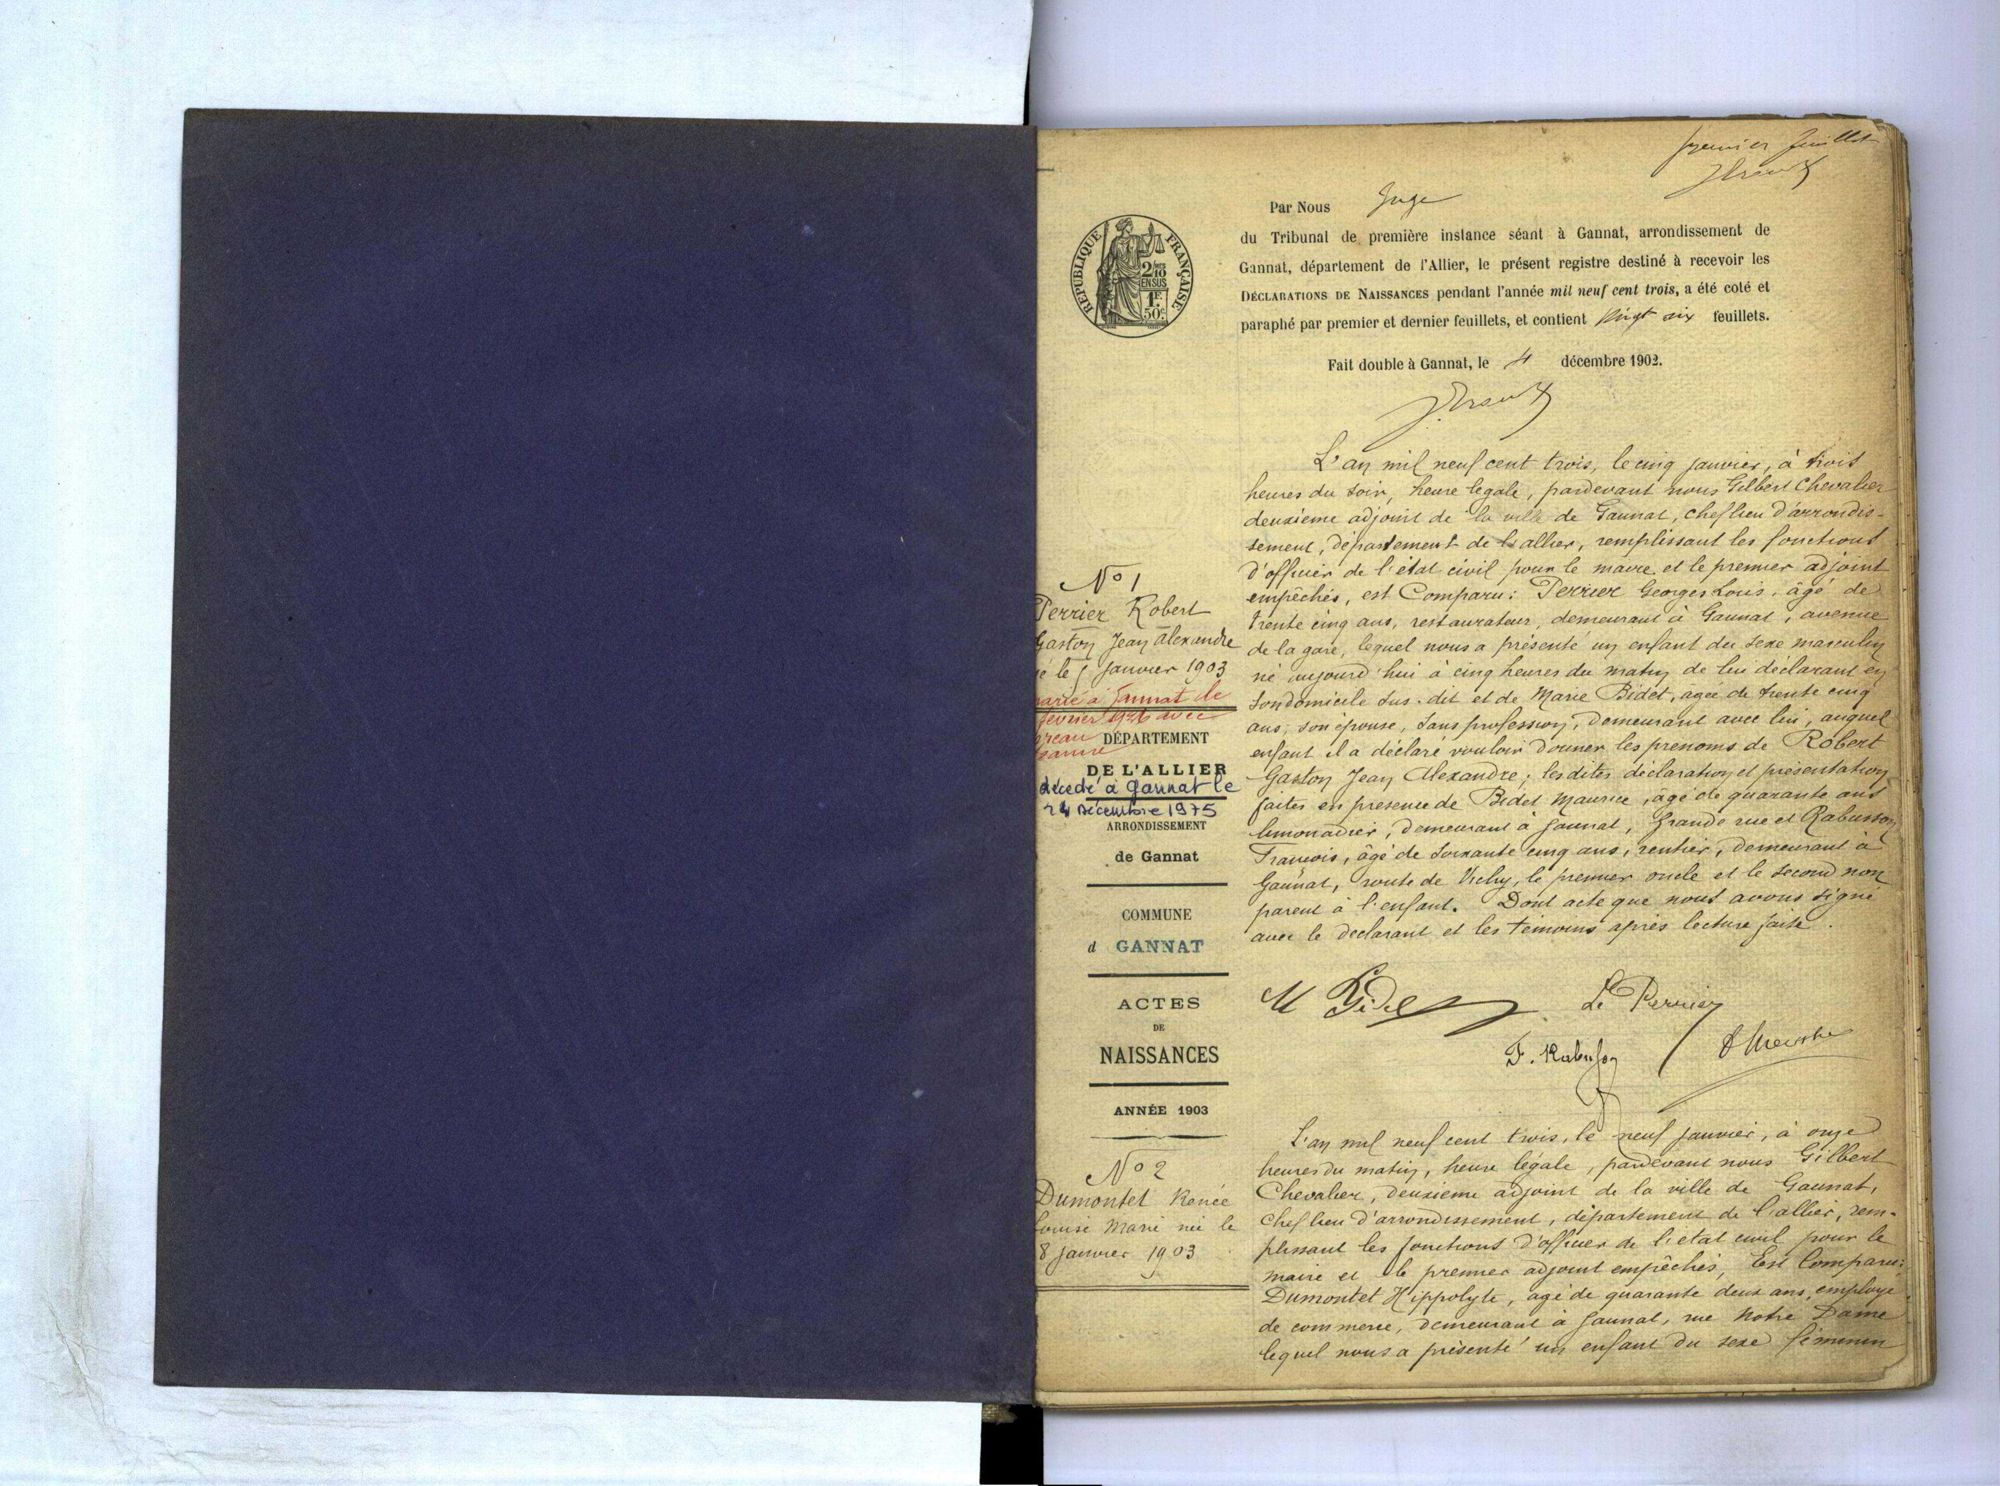 premier feuillet
Par Nous Juge
du Tribunal de première instance séant à Gannat, arrondissement de
Gannat, département de l'Allier, le présent registre destiné à recevoir les
DÉCLARATIONS DE NAISSANCES pendant l'année mil neuf cent trois, a été coté et
paraphé par premier et dernier feuillets, et contient Vingt six feuillets.
Fait double à Gannat, le 4 décembre 1902.
RÉPUBLIQUE FRANÇAISE
2/10
EN SUS
1F
50c
L'an mil neuf cent trois, le cinq janvier, à trois
heures du soir, heure légale, pardevant nous Gilbert Chevalier
deuxième adjoint de la ville de Gannat, chef lieu d'arrondis-
sement, département de l'allier, remplissant les fonctions
d'officier de l'état civil pour le maire et le premier adjoint
empêchés, est Comparu : Perrier Georges Louis, âgé de
trente cinq ans, restaurateur, demeurant à Gannat, avenue
de la gare, lequel nous a présenté un enfant du sexe masculin
né aujourd'hui à cinq heures du matin de lui déclarant en
son domicile sus-dit et de Marie Bidet, agée de trente cinq
ans, son épouse, sans profession, demeurant avec lui, auquel
enfant il a déclaré vouloir donner les prenoms de Robert
Gaston Jean Alexandre ; les dites déclaration et présentation
faites en presence de Bidet Maurice, âgé de quarante ans
limonadier, demeurant à Gannat, Grande rue et Rabusson
François, âgé de soixante cinq ans, rentier, demeurant à
Gannat, route de Vichy, le premier oncle et le second non
parent à l'enfant. Dont acte que nous avons signé
avec le declarant et les témoins après lecture faite.
M Bidet
Ls Perrier
F. Rabusson
N° 1
Perrier Robert
Gaston Jean Alexandre
é le 5 Janvier 1903
marié à Gannat le
février 1926 avec
DÉPARTEMENT
DE L'ALLIER
décédé à Gannat le
24 Décembre 1975
ARRONDISSEMENT
de Gannat
COMMUNE
d GANNAT
ACTES
DE
NAISSANCES
ANNÉE 1903
N° 2
Dumontet Renée
Louise Marie née le
8 janvier 1903
L'an mil neuf cent trois, le neuf janvier, à onze
heures du matin, heure légale, pardevant nous Gilbert
Chevalier, deuxième adjoint de la ville de Gannat,
Chef lieu d'arrondissement, département de l'allier, rem-
plissant les fonctions d'officier de l'état civil pour le
maire et le premier adjoint empêchés, Est Comparu :
Dumontet Hippolyte, agé de quarante deux ans, employé
de commerce, demeurant à Gannat, rue Notre Dame
lequel nous a présenté un enfant du sexe féminin